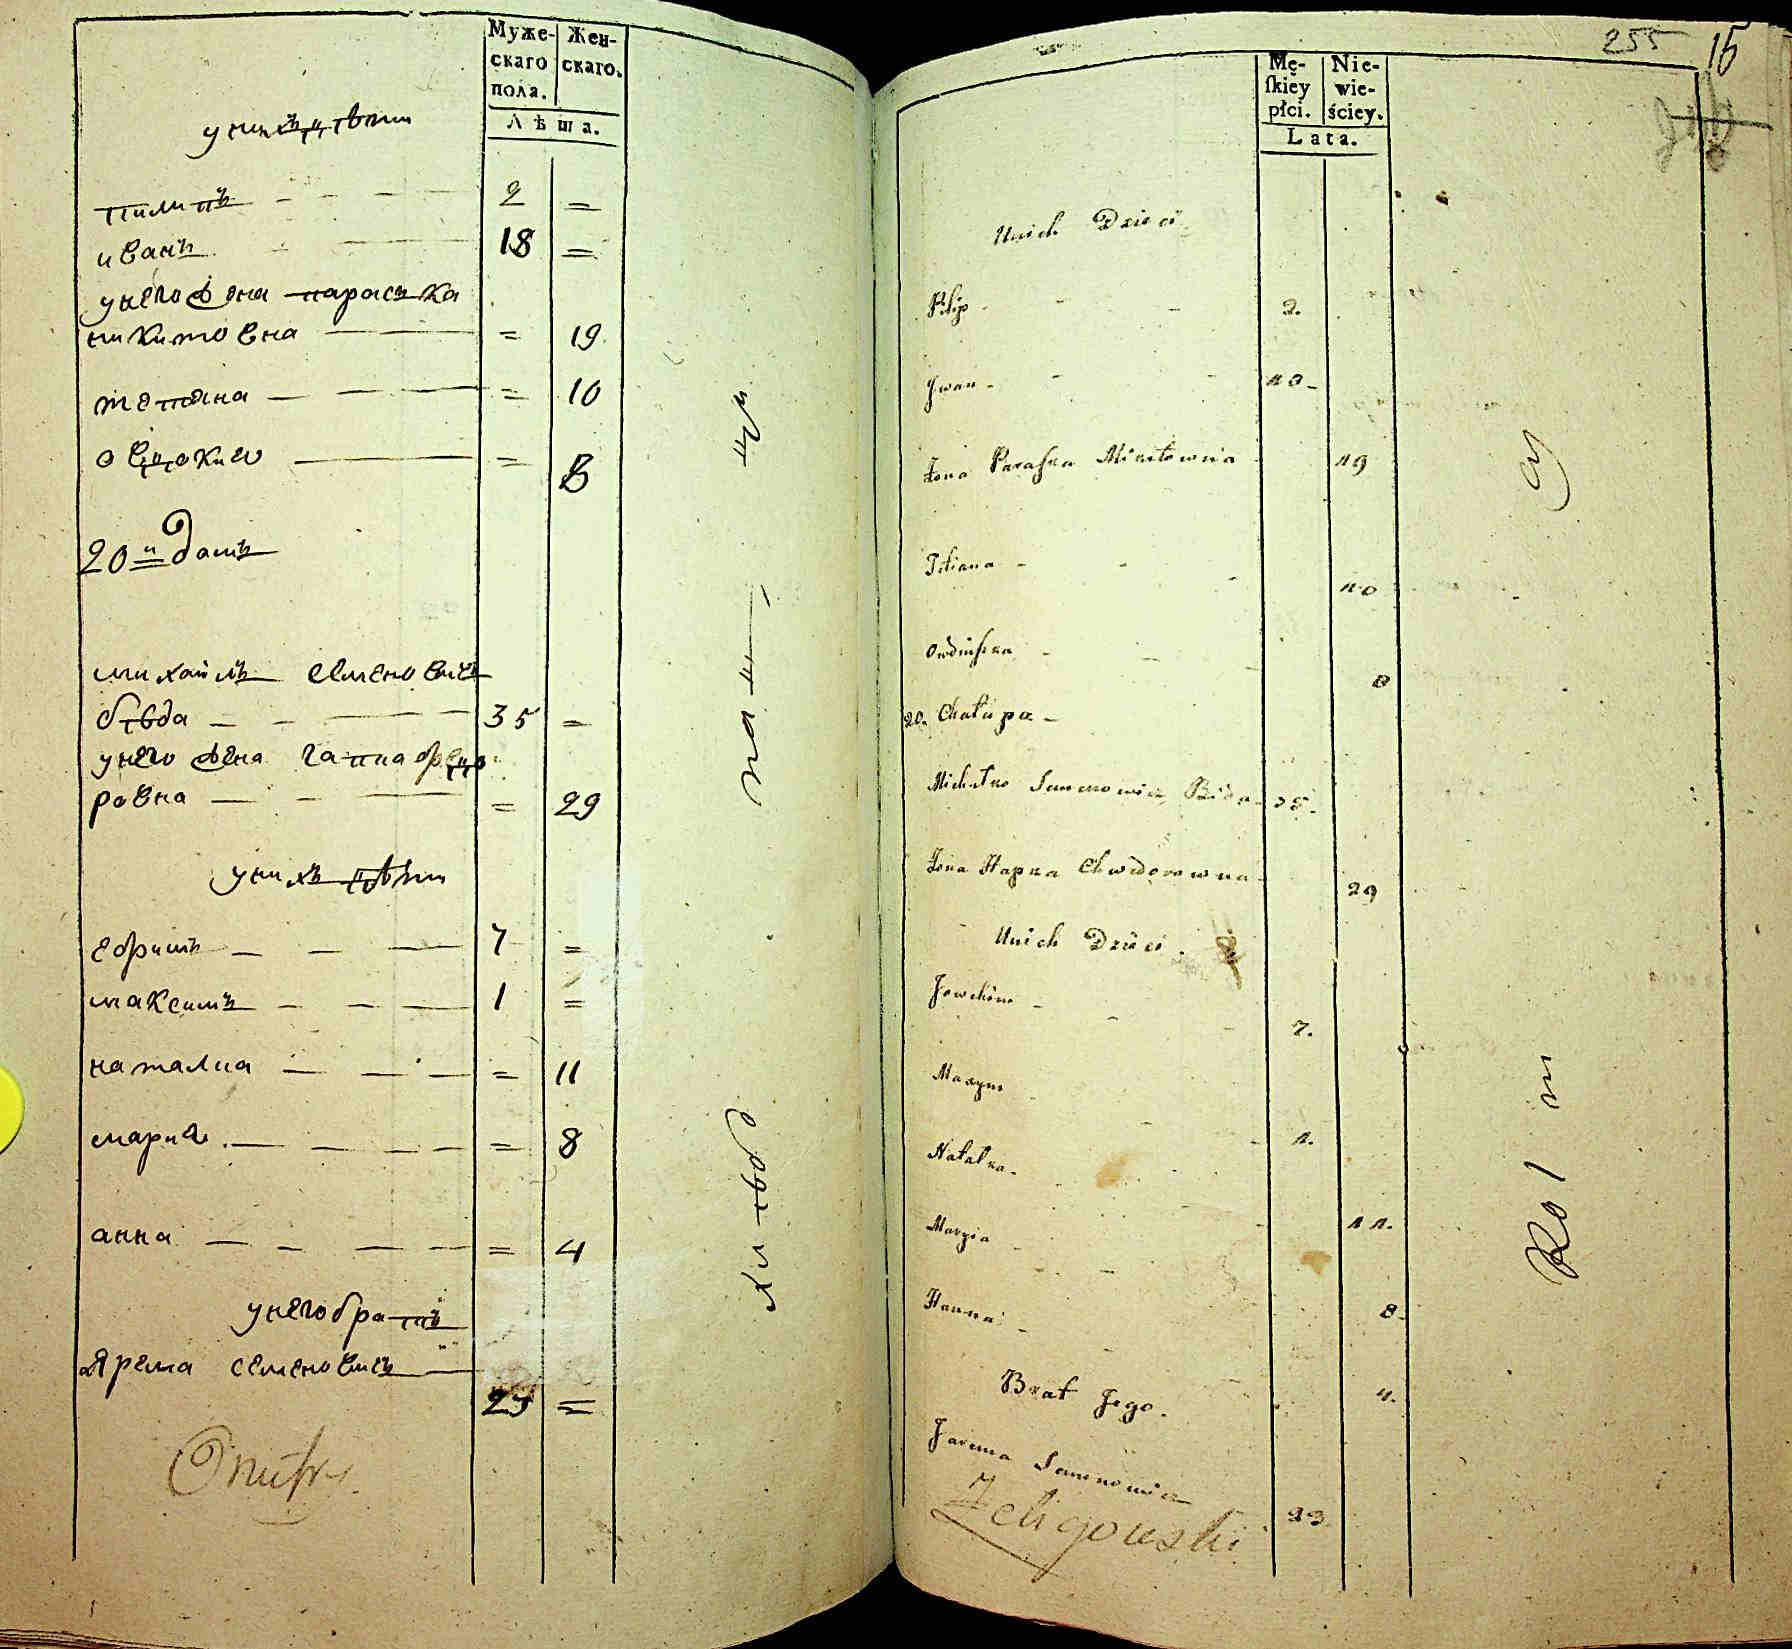 Муже-
скаго
пола.
Жен-
скаго.
Лѣта.
у нихъ дѣти
пилипъ 2 =
иванъ 18 =
у него жена параска
никитовна = 19
тетяна = 10
овдокия = 8
20й домъ
михайлъ семеновичъ
бѣда 35 =
у него жена гапка хведо
ровна = 29
у нихъ дѣти
ефримъ 7 =
максимъ 1 =
наталиа = 11
мария = 8
анна = 4
у него братъ
Ярема семеновичъ
23 =
хлѣбо
паш
цы
Onufry
255 15
Mę-
ſkiey
płci.
Nie-
wie-
ściey.
Lata.
Unich Dzieci
Pilip 2.
Jwan 18
Żona Paraſka Mikitowna 19
Titiana 10
Owdiuſzka 8
20. Chałupa
Michałko Semenowicz Bida 35.
Żona Hapka Chwedorowna 29
Unich Dzieci.
Jowchim 7.
Maxym 1.
Natałka 11.
Maryia 8.
Hanna 4.
Brat Jego.
Jarema Semenowicz 23
Żeligowski
Rolni
cy